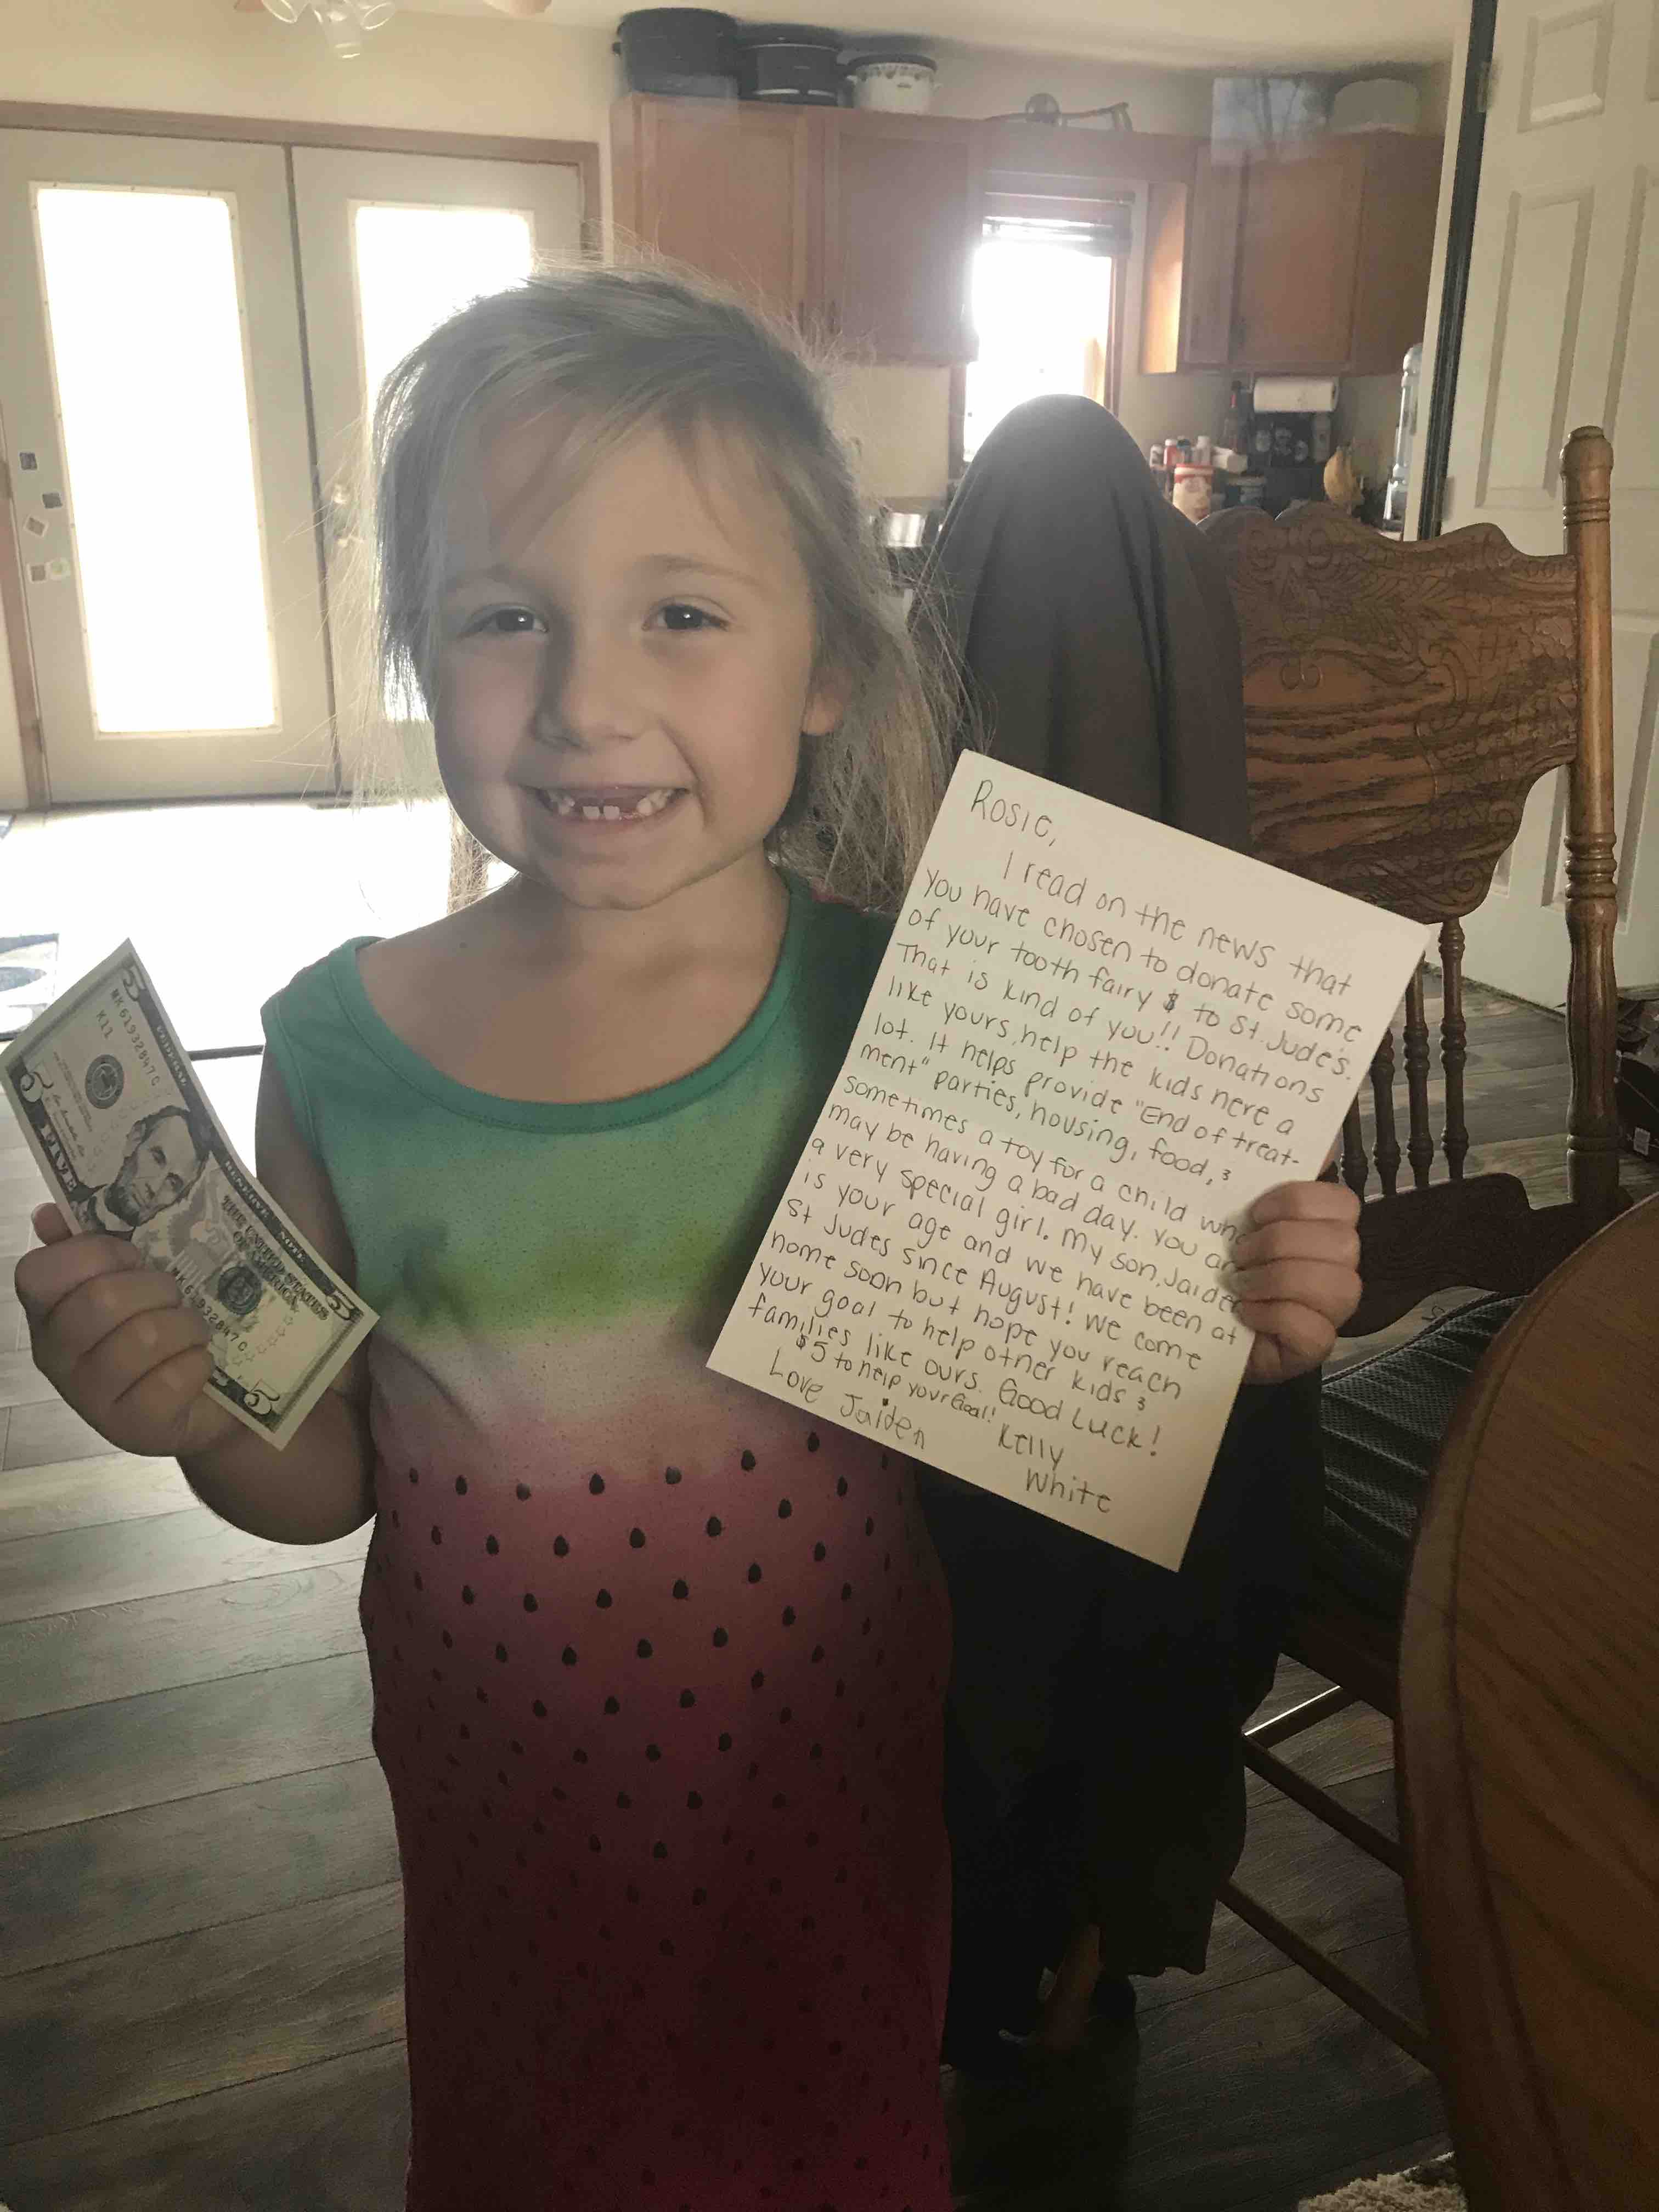 Rosie,
I read on the news that
you have chosen to donate some
of your tooth fairy $ to St. Jude's.
That is kind of you!! Donations
like yours help the kids here a
lot. It helps provide "End of treat-
ment" parties, housing, food, &
sometimes a toy for a child who
may be having a bad day. You are
a very special girl. My son, Jaiden
is your age and we have been at
St Judes since August! We come
home soon but hope you reach
your goal to help other kids &
families like ours. Good Luck!
$5 to help your Goal! Kelly
White
Love Jaiden
5
MK61932847C
K11
FIVE
5
THE UNITED STATES
OF AMERICA
MK61932847C
5
5